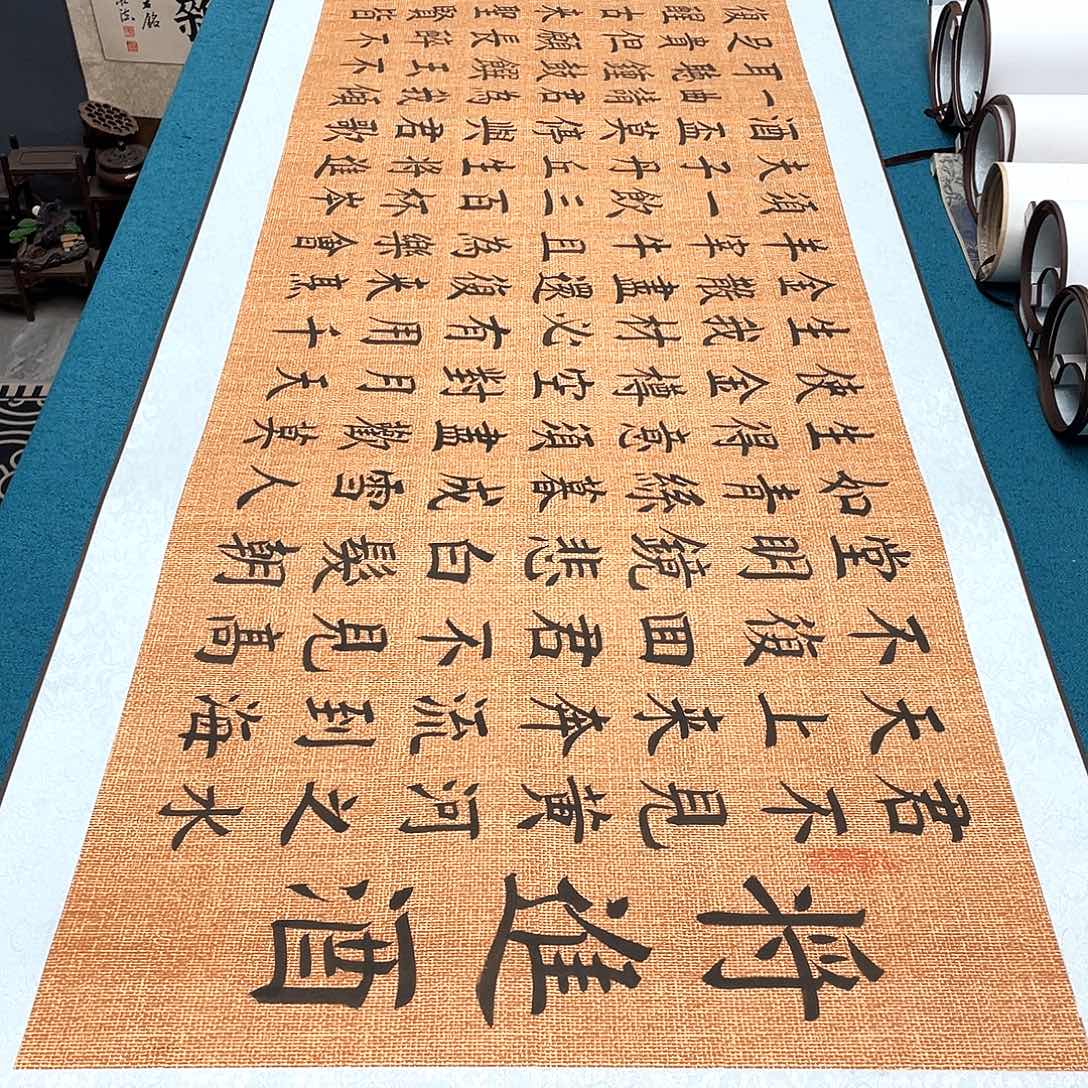 将進酒
君不見黃河之水
天上来奔流到海
不復囬君不見高
堂明鏡悲白髮朝
如青絲暮成雪人
生得意須盡歡莫
使金樽空對月天
生我材必有用千
金散盡還復来烹
羊宰牛且為樂會
須一飲三百杯岑
夫子丹丘生将進
酒盃莫停與君歌
一曲請君為我傾
耳聽鐘鼓饌玉不
足貴但願長醉不
復醒古来聖賢皆